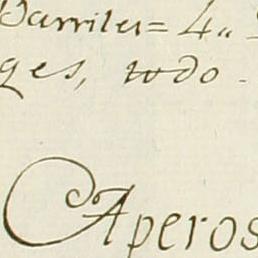 Barriles = 4"
ges, todo
Aperos